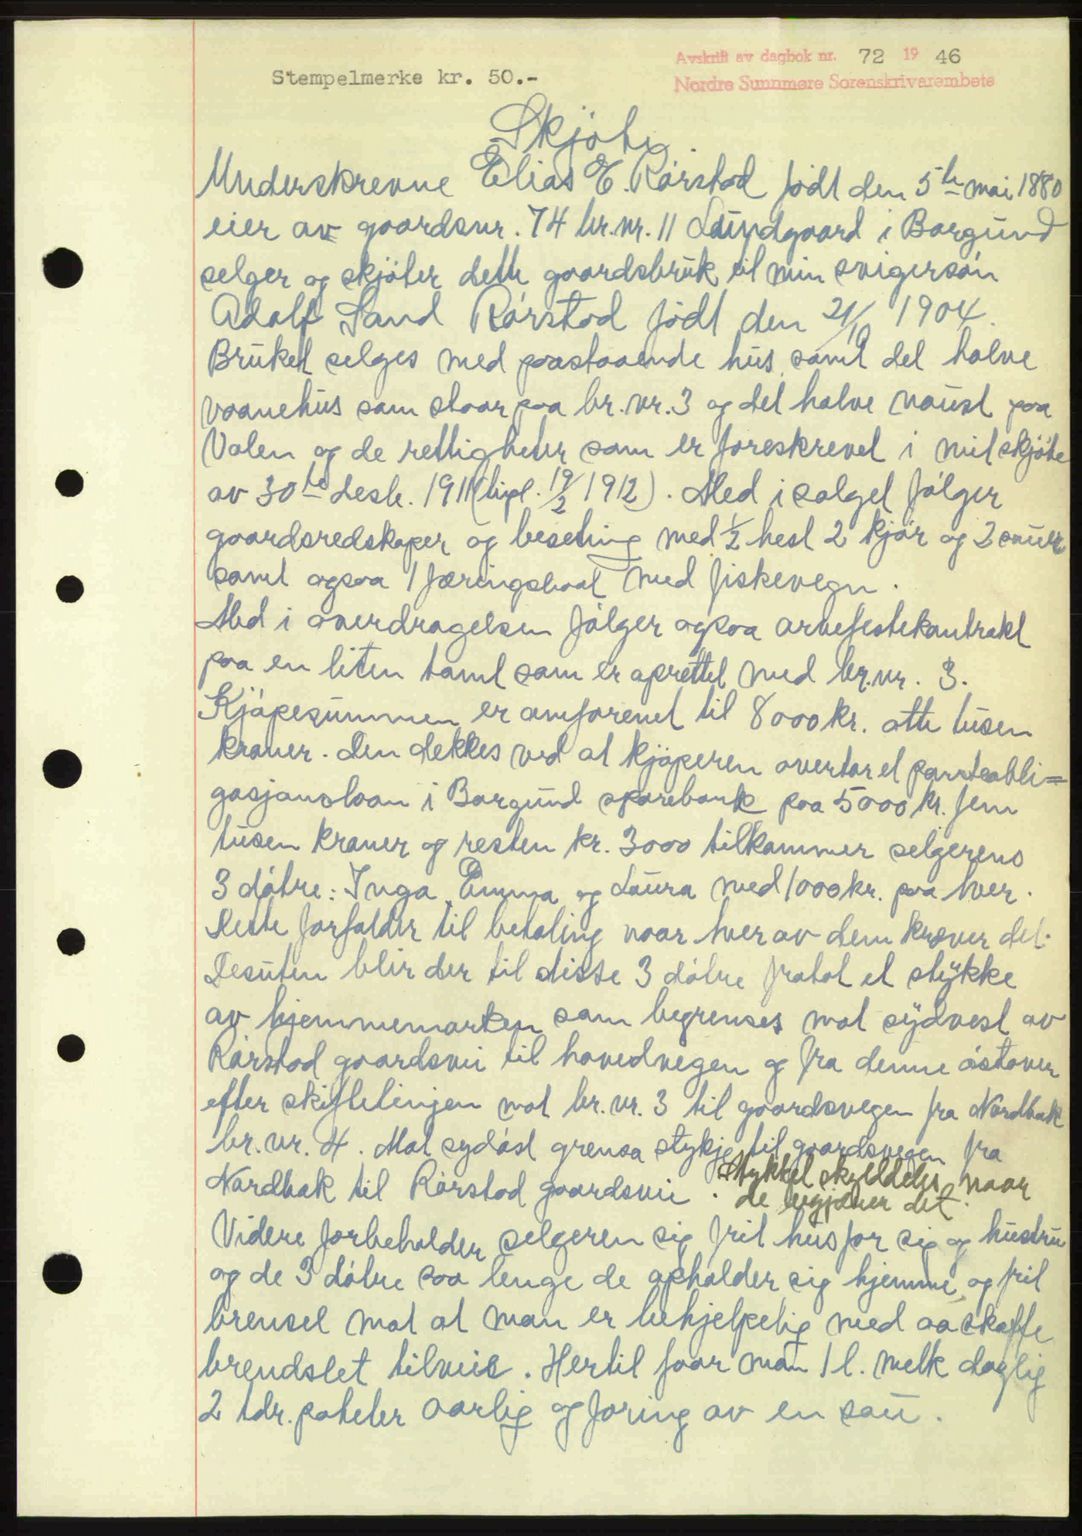 Avskrift av dagbok nr. 72 19 46
Stempelmerke kr. 50.-
Nordre Sunnmøre Sorenskrivarembete
Skjøte.
Underskrevne Elias E. Rørstad født den 5te mai 1880
eier av gaardsnr. 74 br.nr. 11 Lundgaard i Borgund
selger og skjøter dette gaardsbruk til min svigersøn
Adolf Sand Rørstad født den 21/10 1904.
Bruket selges med paastaaende hus samt det halve
vaanehus som staar paa br.nr. 3 og det halve naust paa
Valen og de rettigheter som er foreskrevet i mit skjøte
av 30te desb. 1911 (tinl. 19/2 1912). Med i salget følger
gaardsredskaper og beseting med ½ hest 2 kjør og 2 sauer
samt ogsaa 1 færingsbaat med fiskevegn.
Med i overdragelsen følger ogsaa arvefestekontrakt
paa en liten tomt som er oprettet med br.nr. 3.
Kjøpesummen er omforenet til 8000 kr. otte tusen
kroner. Den dekkes ved at kjøperen overtar et panteobli=
gasjonslaan i Borgund sparebank paa 5000 kr. fem
tusen kroner og resten kr. 3000 tilkommer selgerens
3 døtre: Inga, Emma og Laura med 1000 kr. paa hver.
Dette forfalder til betaling naar hver av dem kræver det.
Desuten blir der til disse 3 døtre fratat et stykke
av hjemmemarken som begrenses mot sydvest av
Rørstad gaardsvei til hovedvegen og fra denne østover
efter skiftelinjen mot br.nr. 3 til gaardsvegen fra Nordbak
br.nr. 4. Mot sydøst grensa stykje til gaardsvegen fra
Nordbak til Rørstad gaardsvei. Stykket skylddeles naar
de begjærer det.
Videre forbeholder selgeren sig frit hus for sig og hustru
og de 3 døtre saa lenge de opholder sig hjemme, og frit
brensel mot at man er behjelpelig med aa skaffe
brendslet tilveie. Hertil faar man 1 l. melk daglig
2 tdr. poteter aarlig og foring av en sau.